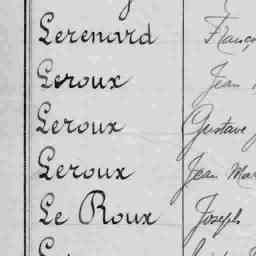 Lerenard
Leroux Jean
Leroux Gustave
Leroux Jean Mar
Le Roux Joseph